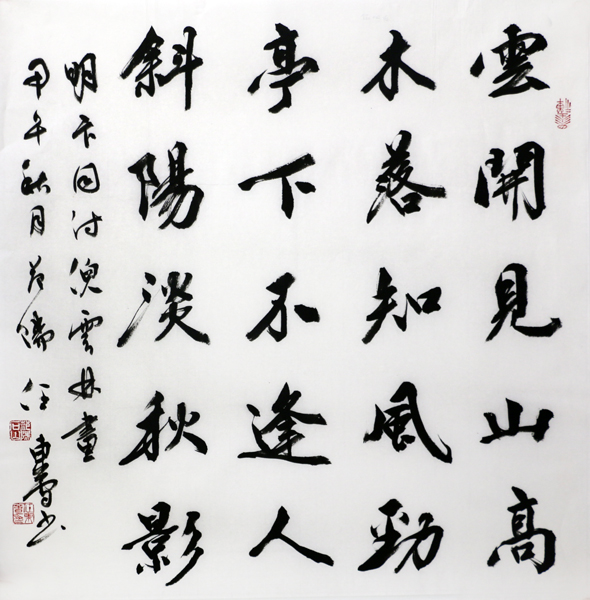 雲開見山高
木落知風勁
亭下不逢人
斜陽淡秋影
明卞同詩倪雲林畫
甲午秋月
任
書